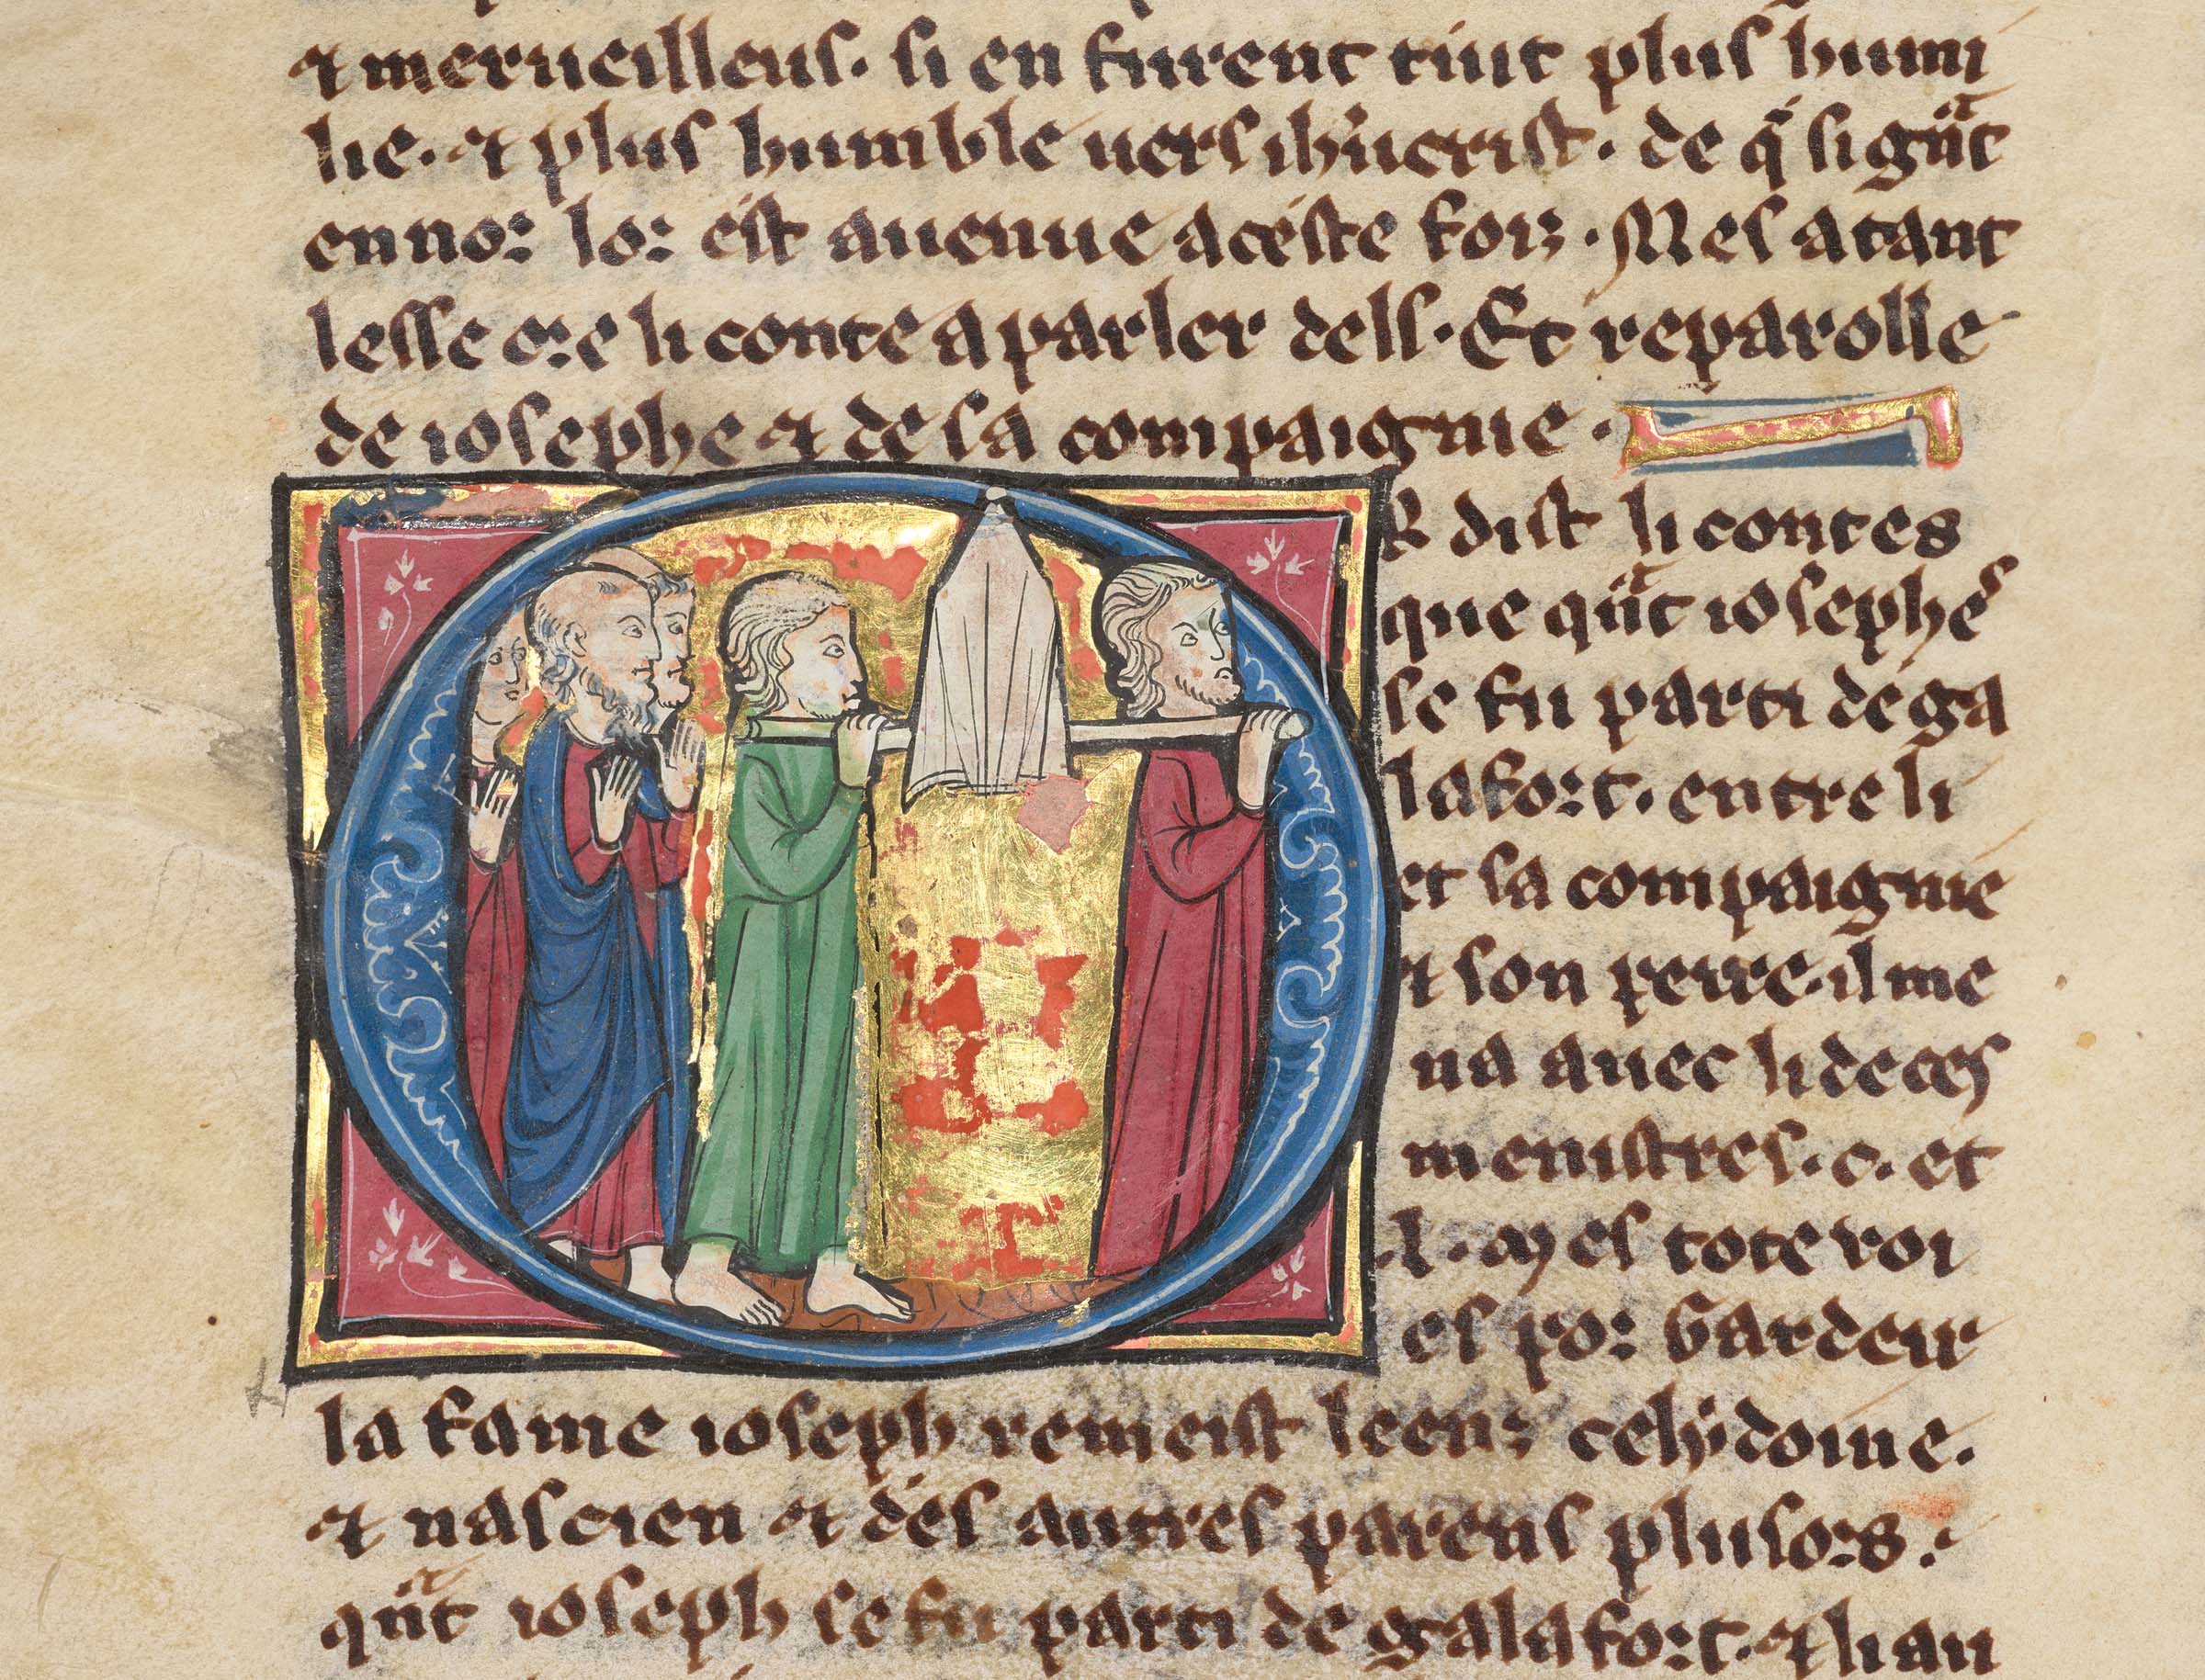 ⁊ merueilleus. si en furent tuit plus humi
lie. ⁊ plus humble uers ihũcrist. de q̃ si gñt
en nor lor est auenue a ceste foiz. Mes atant
lesse ore li conte a parler dels. Et reparolle
de iosephe ⁊ de sa compaignie.
OR dist li contes
que qñt iosephes
se fu parti de ga
lafort. entre li
et sa compaignie
⁊ son peire. il me
na auec li de ces
menistres. c. et
.l. Mes tote voi
es por Gardeir
la fame ioseph remeist leenz celydoine.
⁊ nascien ⁊ des autres parens plusors.
qñt ioseph se fu parti de galafort. ⁊ li au